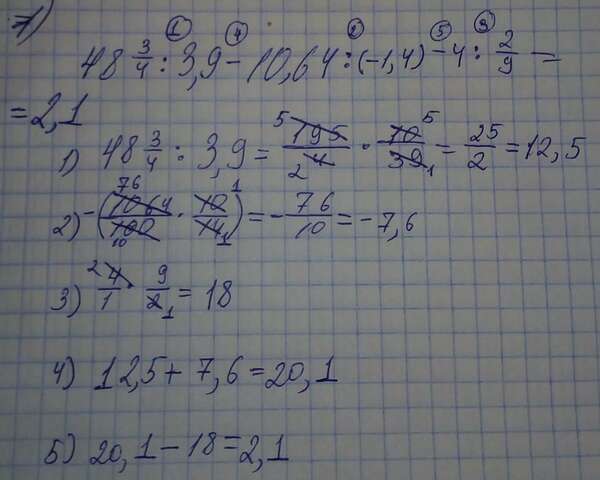 7)
48 3/4 : 3,9 - 10,64 : (-1,4) - 4 : 2/9 =
① ④ ② ⑤ ③
= 2,1
1) 48 3/4 : 3,9 = 195/4 · 10/39 = 25/2 = 12,5
5 2 5 1
2) -(1064/100 · 10/14) = - 76/10 = -7,6
76 10 1 1
3) 4/1 · 9/2 = 18
2 1
4) 12,5 + 7,6 = 20,1
5) 20,1 - 18 = 2,1